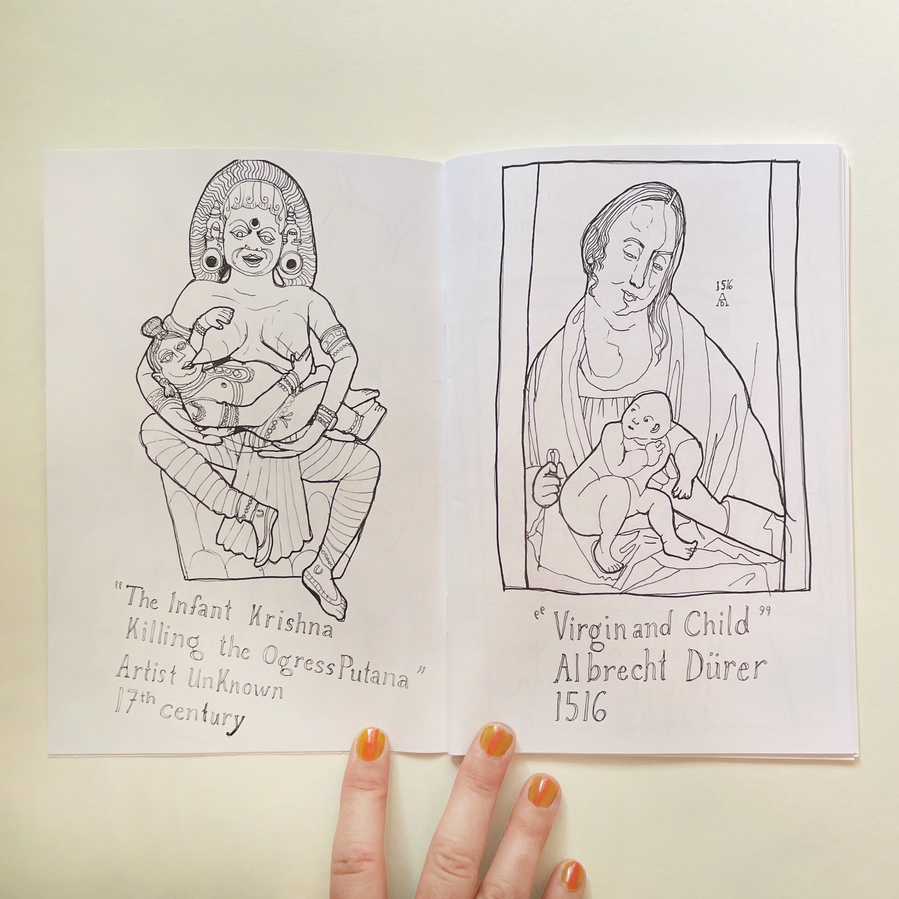 "The Infant Krishna
Killing the Ogress Putana"
Artist UnKnown
17th century
1516
AD
"Virgin and Child"
Albrecht Dürer
1516